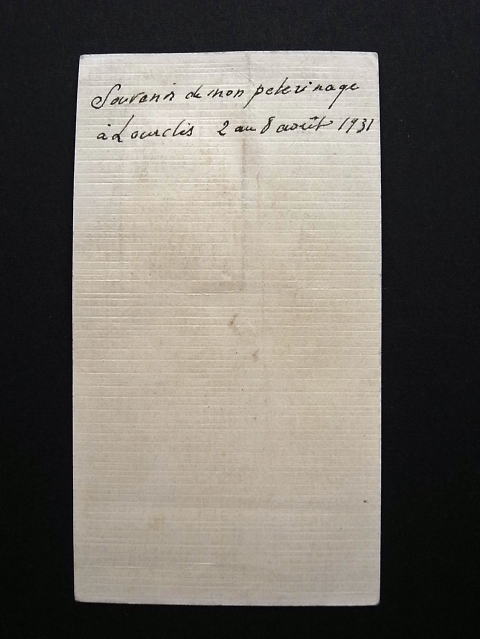 Souvenir de mon pelerinage
à Lourdes 2 au 8 août 1931